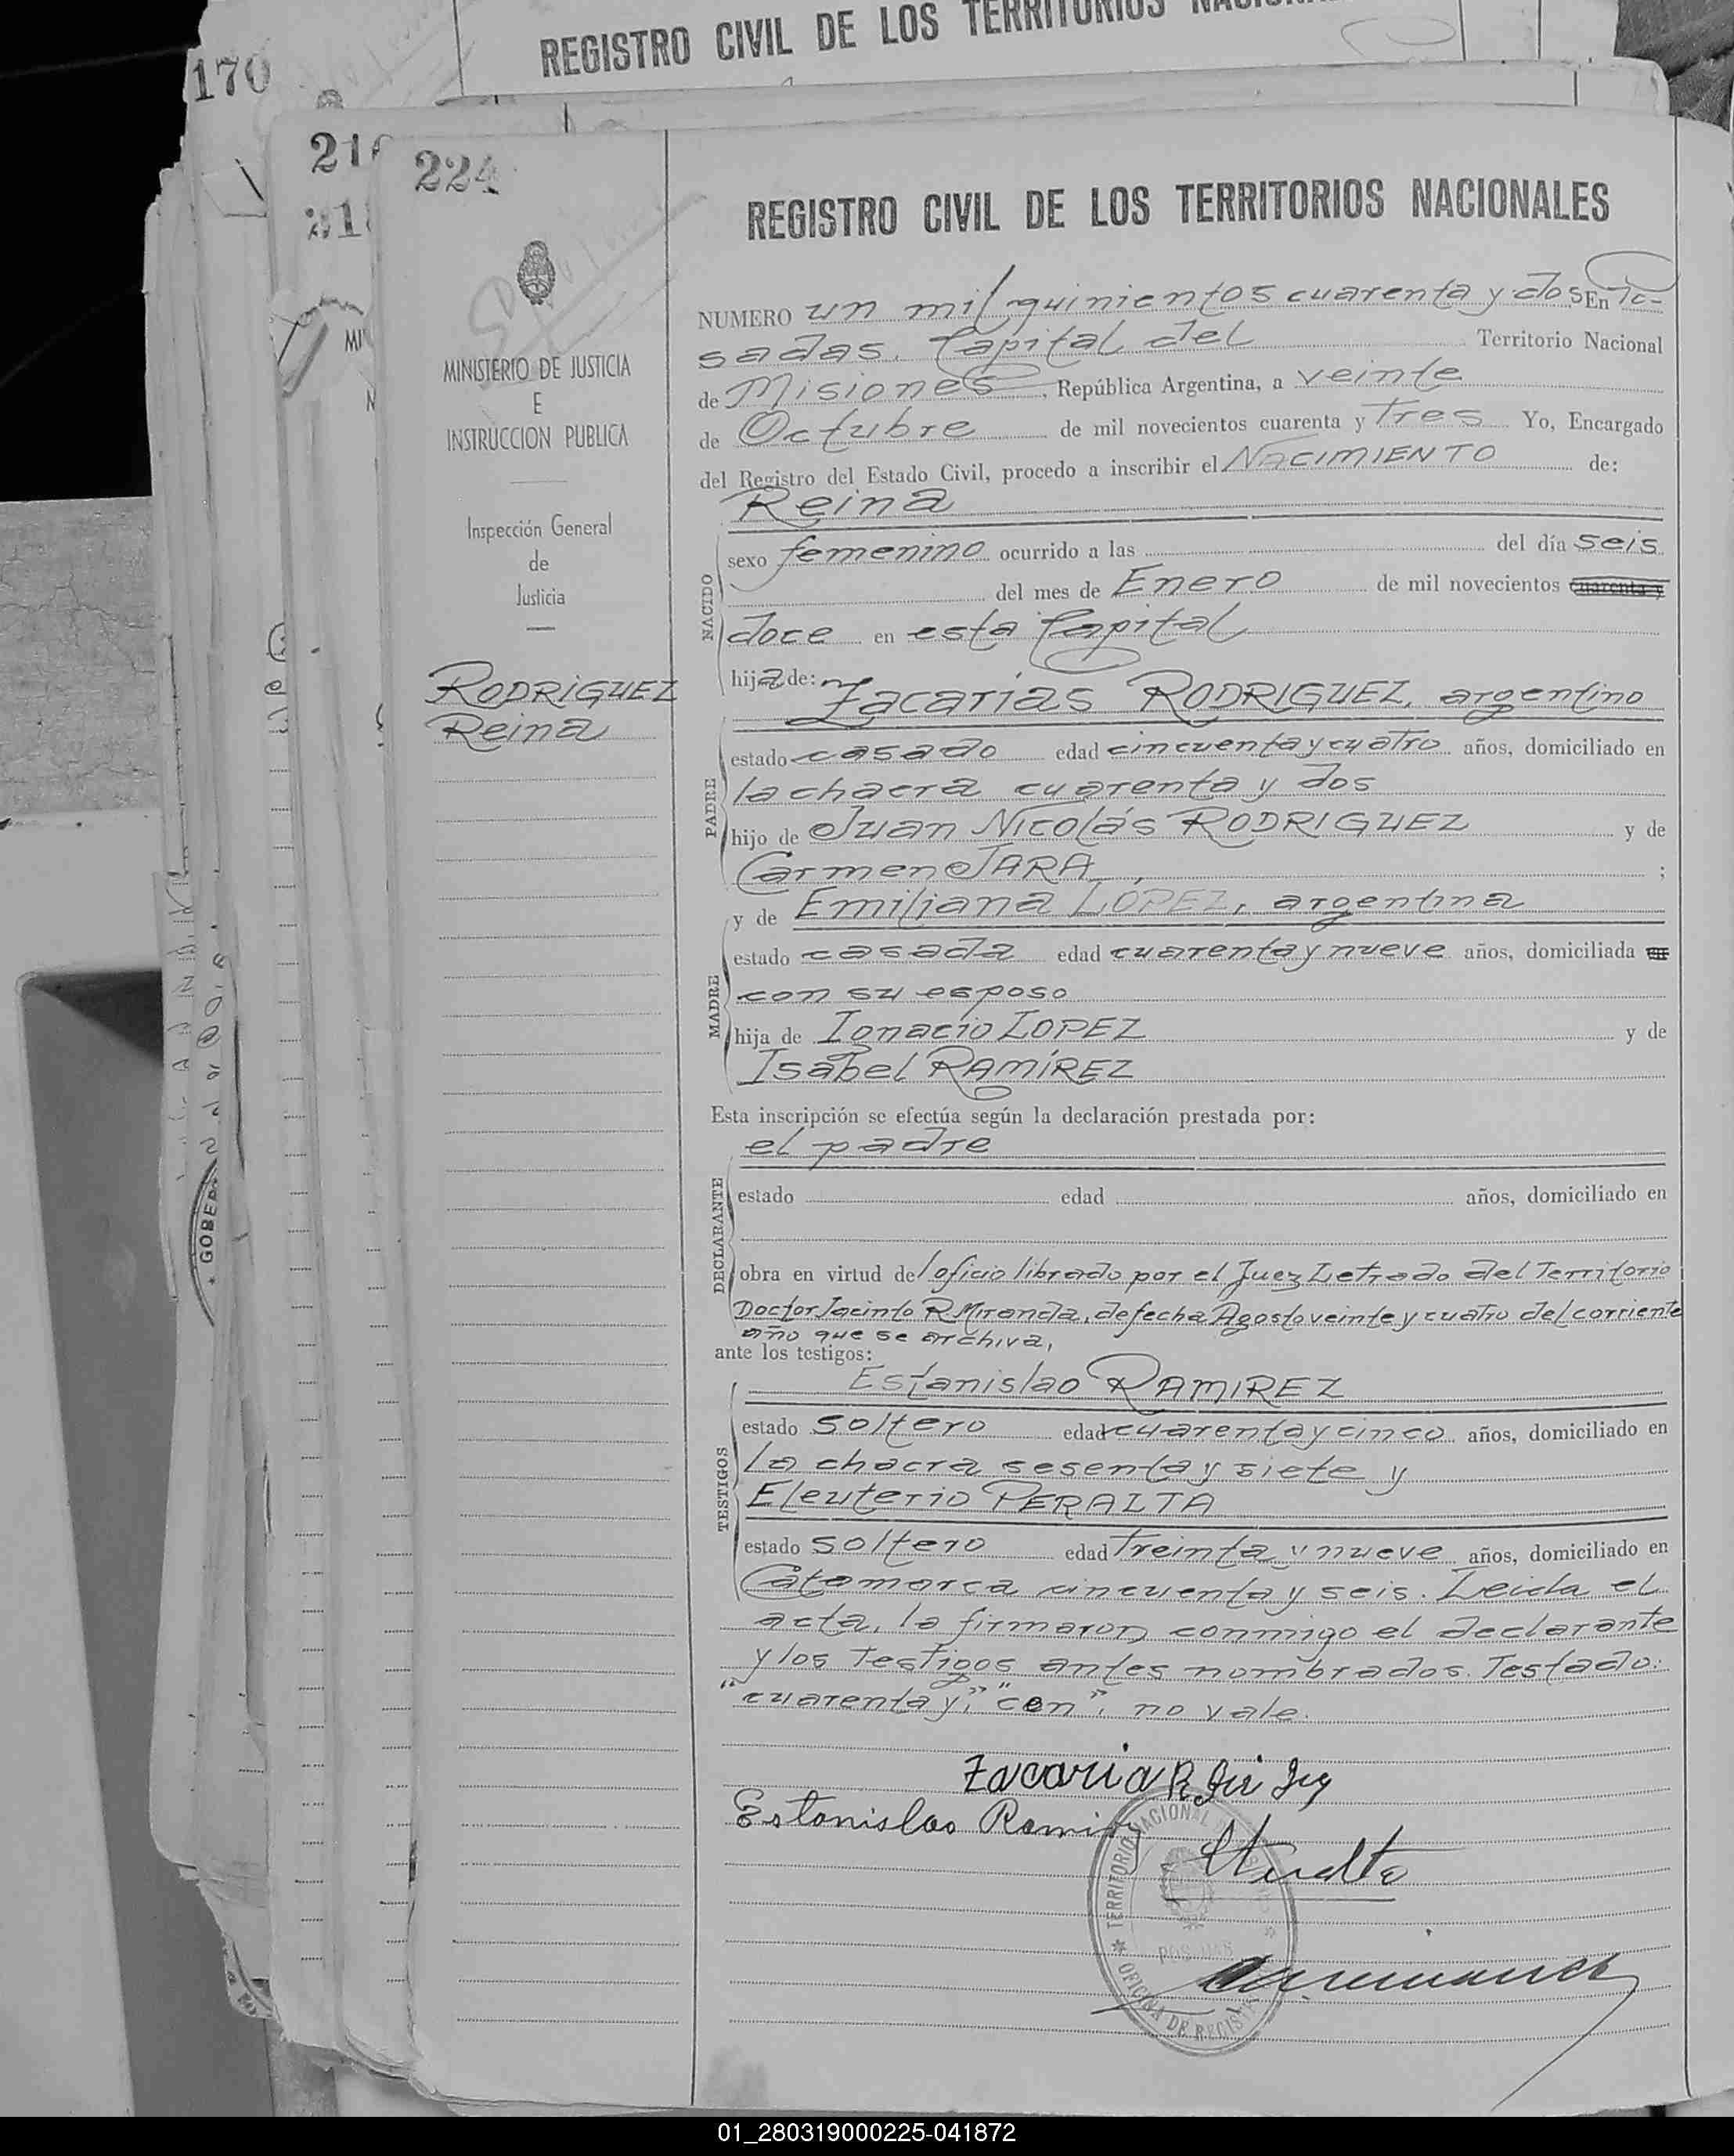 REGISTRO CIVIL DE LOS TERRITORIOS
170
21
224
REGISTRO CIVIL DE LOS TERRITORIOS NACIONALES
MINISTERIO DE JUSTICIA
E
INSTRUCCION PUBLICA
Inspección General
de
Justicia
RODRIGUEZ
Reina
NUMERO un mil quinientos cuarenta y dos En Po-
sadas, Capital del Territorio Nacional
de Misiones, República Argentina, a veinte
de Octubre de mil novecientos cuarenta y Tres Yo, Encargado
del Registro del Estado Civil, procedo a inscribir el NACIMIENTO de:
Reina
NACIDO
sexo femenino ocurrido a las del día seis
del mes de Enero de mil novecientos cuarenta y
doce en esta Capital
hija de:
Zacarías RODRIGUEZ, argentino
PADRE
estado casado edad cincuenta y cuatro años, domiciliado en
la chacra cuarenta y dos
hijo de Juan Nicolás RODRIGUEZ y de
Carmen JARA ;
y de Emiliana LÓPEZ, argentina
MADRE
estado casada edad cuarenta y nueve años, domiciliada en
con su esposo
hija de Ignacio LOPEZ y de
Isabel RAMÍREZ
Esta inscripción se efectúa según la declaración prestada por:
el padre
DECLARANTE
estado edad años, domiciliado en
obra en virtud del oficio librado por el Juez Letrado del Territorio
Doctor Jacinto R. Miranda, de fecha Agosto veinte y cuatro del corriente
año que se archiva,
ante los testigos:
Estanislao RAMIREZ
TESTIGOS
estado soltero edad cuarenta y cinco años, domiciliado en
la chacra sesenta y siete y
Eleuterio PERALTA
estado soltero edad treinta y nueve años, domiciliado en
Catamarca cincuenta y seis. Leida el
acta, la firmaron conmigo el declarante
y los testigos antes nombrados. Testado:
"cuarenta y", "en", no vale.
Zacaria
Estanislao Ramirez
TERRITORIO NACIONAL
POSADAS
OFICINA DE REGISTRO
GOBER
01_280319000225-041872